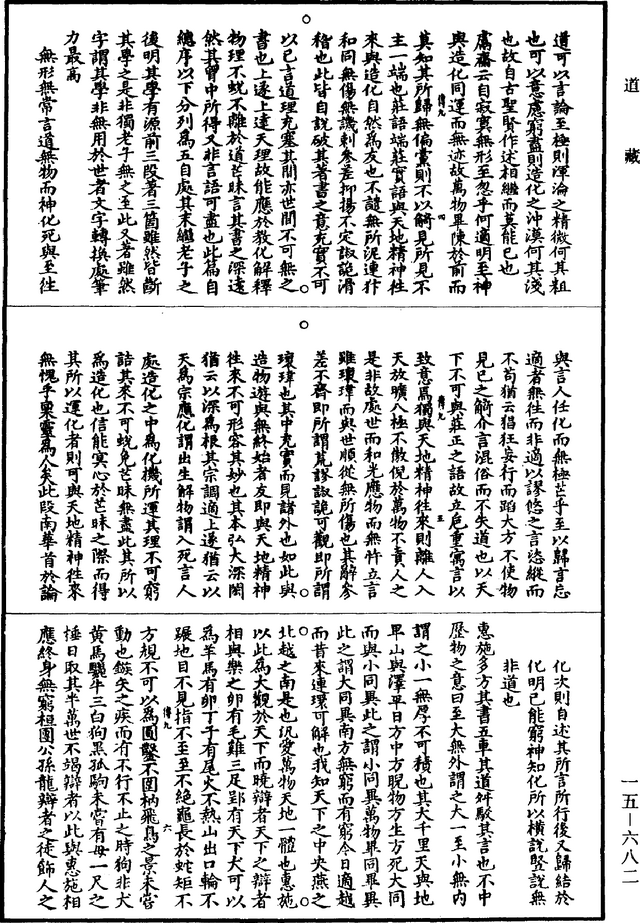 道藏
道可以言論至極則渾淪之精微何其粗
也可以意慮窮盡則造化之沖漠何其淺
也故自古聖賢作述相繼而莫能已也
屬齋云自寂寞無形至忽乎何適明至神
與造化同運而無迹故萬物畢陳於前而
莫知其所歸無偏黨則不以觭見所見不
主一端也莊語端莊實語與天地精神往
來與造化自然為友也不譴無所泥連犿
和同無傷無譏刺參差抑揚不定諔詭滑
稽也此皆自說破其著書之意充實不可
以已言道理充塞其間亦世間不可無之
書也上遂上達天理故能應於教化解釋
物理不蛻不離於道芒昧言其書之深遠
然其胷中所得又非言語可盡也此篇自
總序以下分列為五自處其末繼老子之
後明其學有源前三段著三箇雖然皆斷
其學之是非獨老子無之至此又著雖然
字謂其學非無用於世者文字轉換處筆
力最高
無形無常言道無物而神化死與至往
與言人任化而無極芒乎至以歸言忘
適者無往而非適以謬悠之言恣縱而
不苟猶云猖狂妄行而蹈大方不使物
見已之觭介言混俗而不失道也以天
下不可與莊正之語故立巵重寓言以
致意焉獨與天地精神往來則離人入
天放曠八極不傲倪於萬物不責人之
是非故處世而和光應物而無忤立言
雖瓌瑋而與世順從無所傷也其辭參
差不齊即所謂荒謬諔詭可觀即所謂
瓌瑋也其中充實而見諸外也如此與
造物遊與無終始者友即與天地精神
往來不可形容其妙也其本弘大深閎
猶云以深為根其宗調適上遂猶云以
天為宗應化謂出生解物謂入死言人
處造化之中為化機所運其理不可窮
詰其來不可蛻免芒昧無盡此其所以
為造化也信能冥心於芒昧之際而得
其所以運化者則可與天地精神往來
無愧乎稟靈為人矣此段南華首於論
化次則自述其所言所行後又歸結於
化明已能窮神知化所以橫說竪說無
非道也
惠施多方其書五車其道舛駁其言也不中
歷物之意曰至大無外謂之大一至小無內
謂之小一無厚不可積也其大千里天與地
卑山與澤平日方中方睨物方生方死大同
而與小同異此之謂小同異萬物畢同畢異
此之謂大同異南方無窮而有窮今日適越
而昔來連環可解也我知天下之中央燕之
北越之南是也氾愛萬物天地一體也惠施
以此為大觀於天下而曉辯者天下之辯者
相與樂之卵有毛雞三足郢有天下犬可以
為羊馬有卵丁子有尾火不熱山出口輪不
蹍地目不見指不至至不絕龜長於蛇矩不
方規不可以為圓鑿不圍枘飛鳥之景未嘗
動也鏃矢之疾而有不行不止之時狗非犬
黃馬驪牛三白狗黑孤駒未嘗有母一尺之
捶日取其半萬世不竭辯者以此與惠施相
應終身無窮桓團公孫龍辯者之徒飾人之
傳九
四
傳九
五
傳九
六
一五—六八二